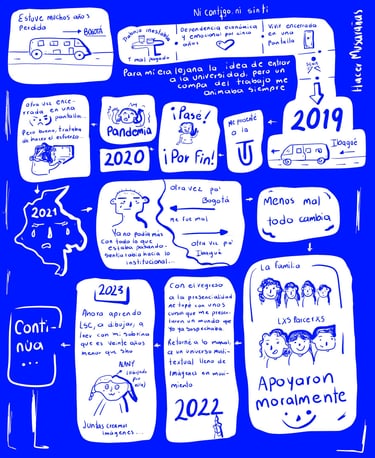 Ni contigo, ni sin ti
Estuve muchos años
Perdida
Bogotá
Trabajo inestable
y mal pagado
Dependencia económica
y emocional por cinco
años
Vivir encerrada
en una
Pantalla
Hacer Musarañas
Para mí era lejana la idea de entrar
a la universidad, pero un
compa del trabajo me
animaba siempre
2019
Ibagué
Me presenté
a la
¡Pasé!
¡Por Fin!
Pandemia
2020
Otra vez ence-
rrada en una
pantalla...
Pero bueno, trataba
de hacer el esfuerzo...
2021
Otra vez pa'
Bogotá
Me fue mal
Otra vez pa'
Ibagué
Ya no podía más
con todo lo que
estaba pasando.
Sentía rabia hacia lo
institucional...
Menos mal
todo cambia
La familia
Lxs Parcerxs
Apoyaron
moralmente
Con el regreso
a la presencialidad
me topé con unos
cursos que me presen-
taron un mundo que
ya sospechaba.
Retorné a lo manual,
a un universo multi-
textual lleno de
imágenes en movi-
miento
2022
2023
Ahora aprendo
LSC, a dibujar, a
leer con mi sobrina
que es veinte años
menor que sho
NANY
(dibujado
por ella)
Juntas creamos
imágenes...
Conti-
núa
...